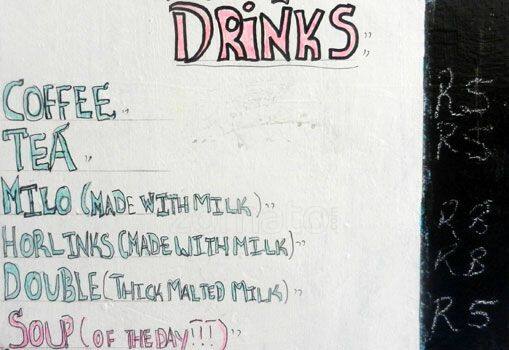 DRINKS ,,
COFFEE ,, R5
TEA ,, R5
MILO (MADE WITH MILK) ,, R8
HORLINKS (MADE WITH MILK) ,, R8
DOUBLE (THICK MALTED MILK) ,,
SOUP (OF THE DAY!!!) ,, R5